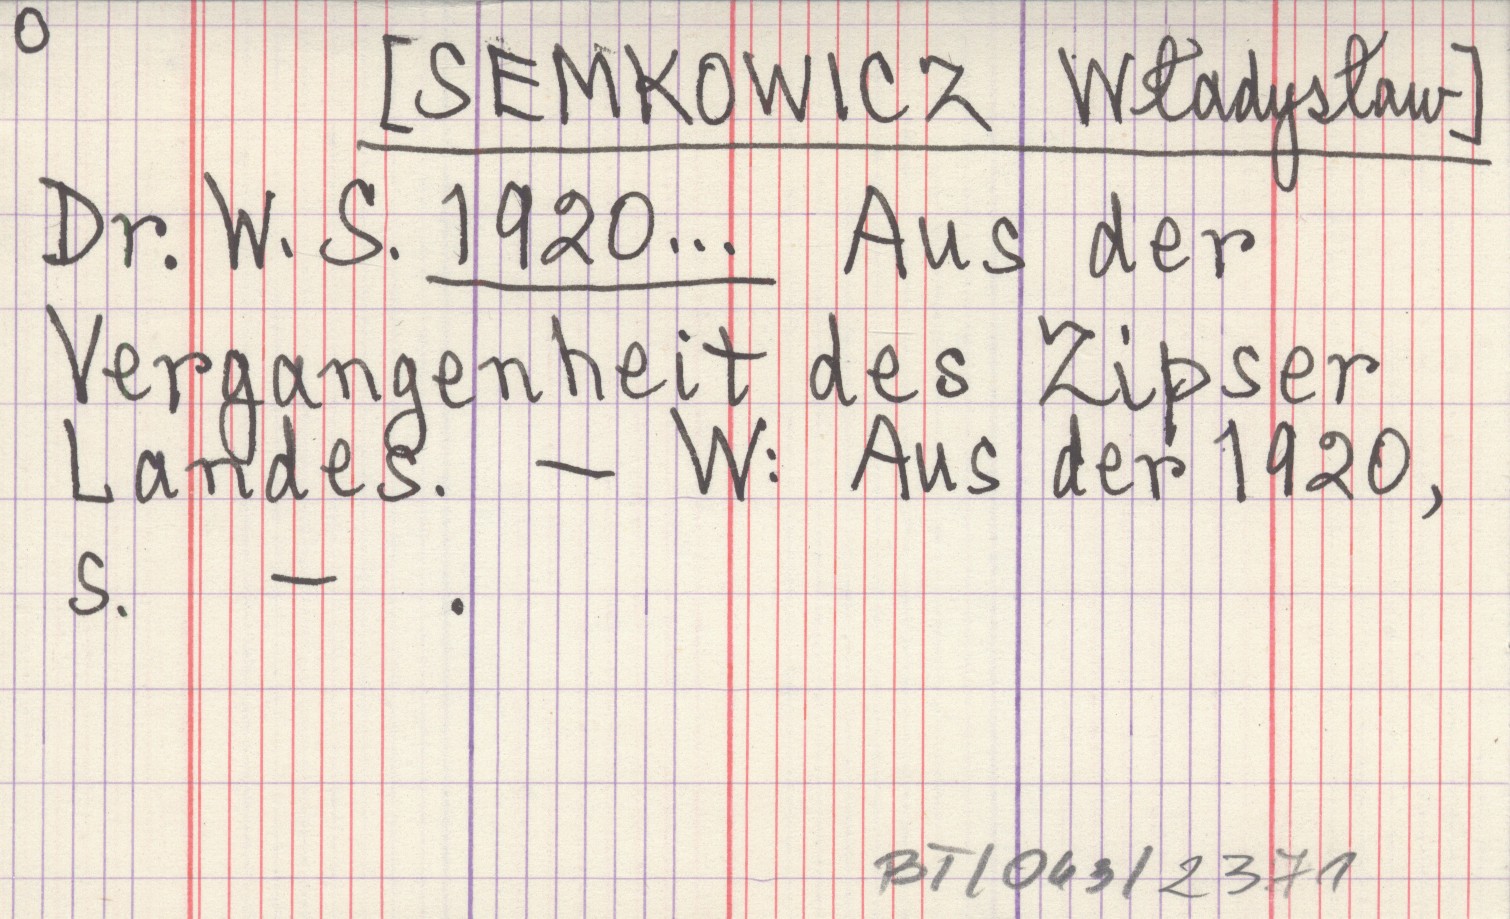 O
[SEMKOWICZ Władysław]
Dr. W. S. 1920... Aus der
Vergangenheit des Zipser
Landes. — W: Aus der 1920,
s. — .
BT/043/2371